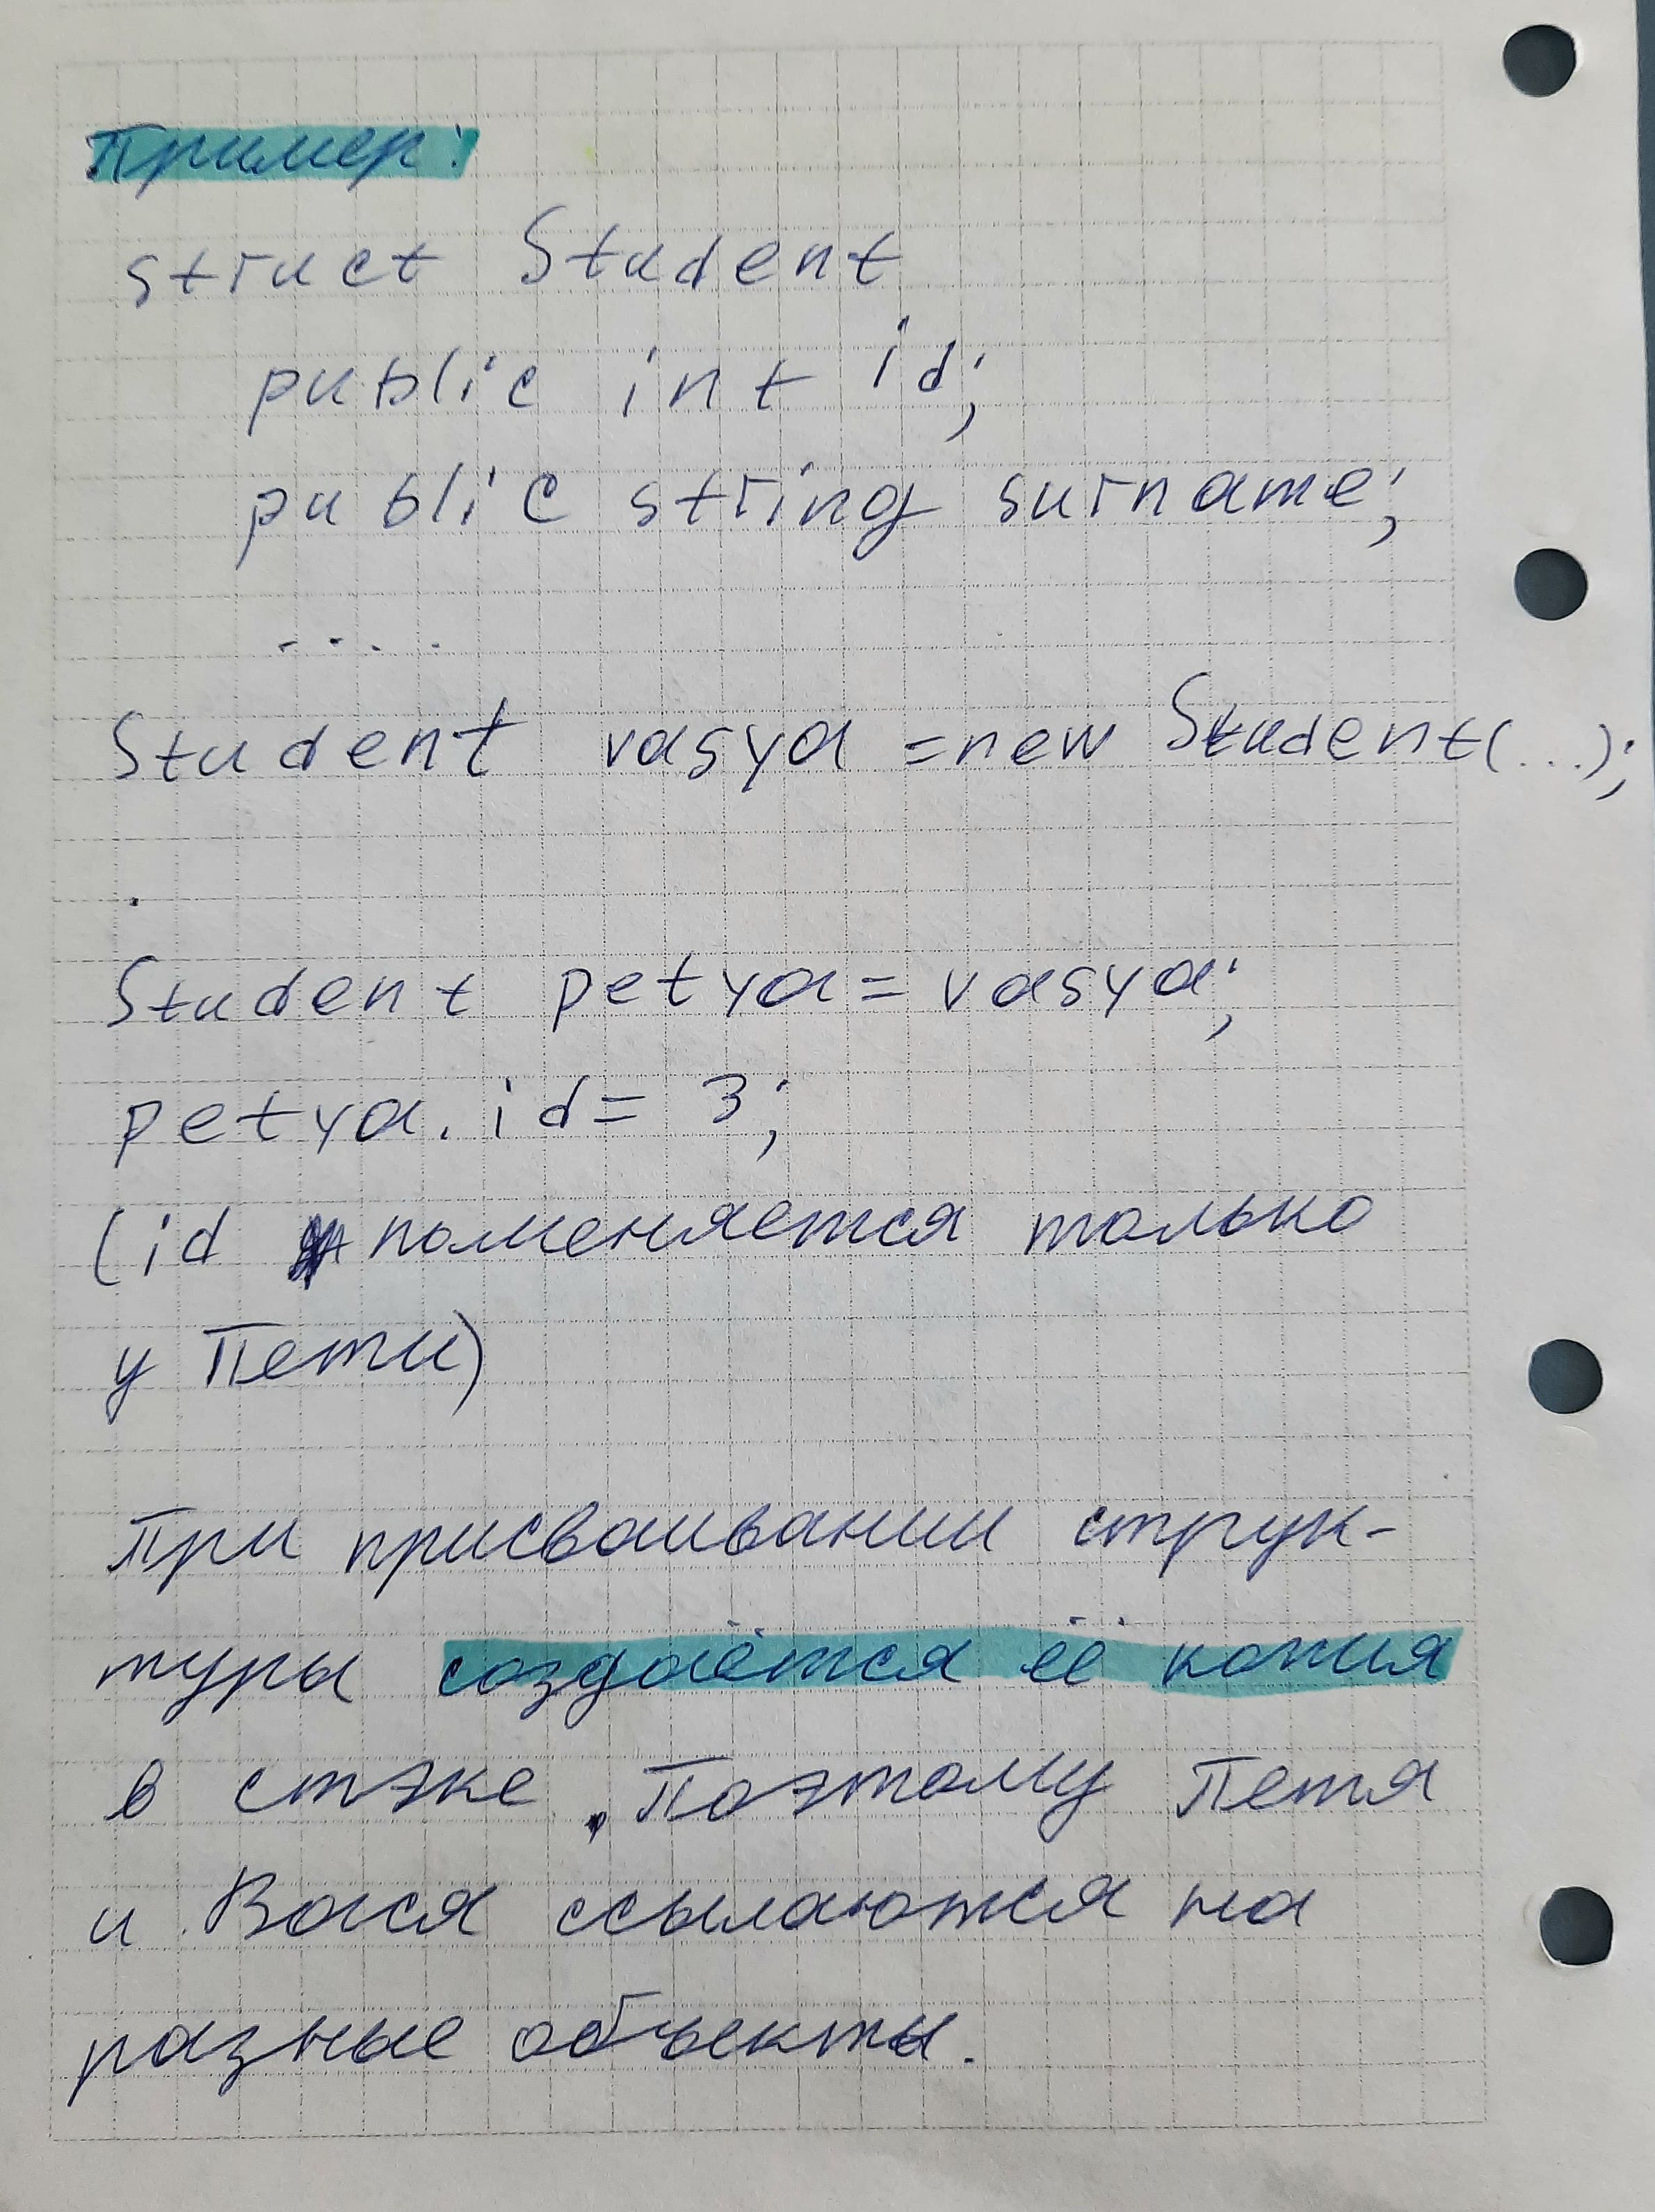 Пример:
struct Student
public int id;
public string surname;
.....
Student vasya = new Student(...);
.
Student petya = vasya;
petya.id = 3;
(id поменяется только
у Пети)
При присваивании струк-
туры создаётся её копия
в стэке. Поэтому Петя
и Вася ссылаются на
разные объекты.